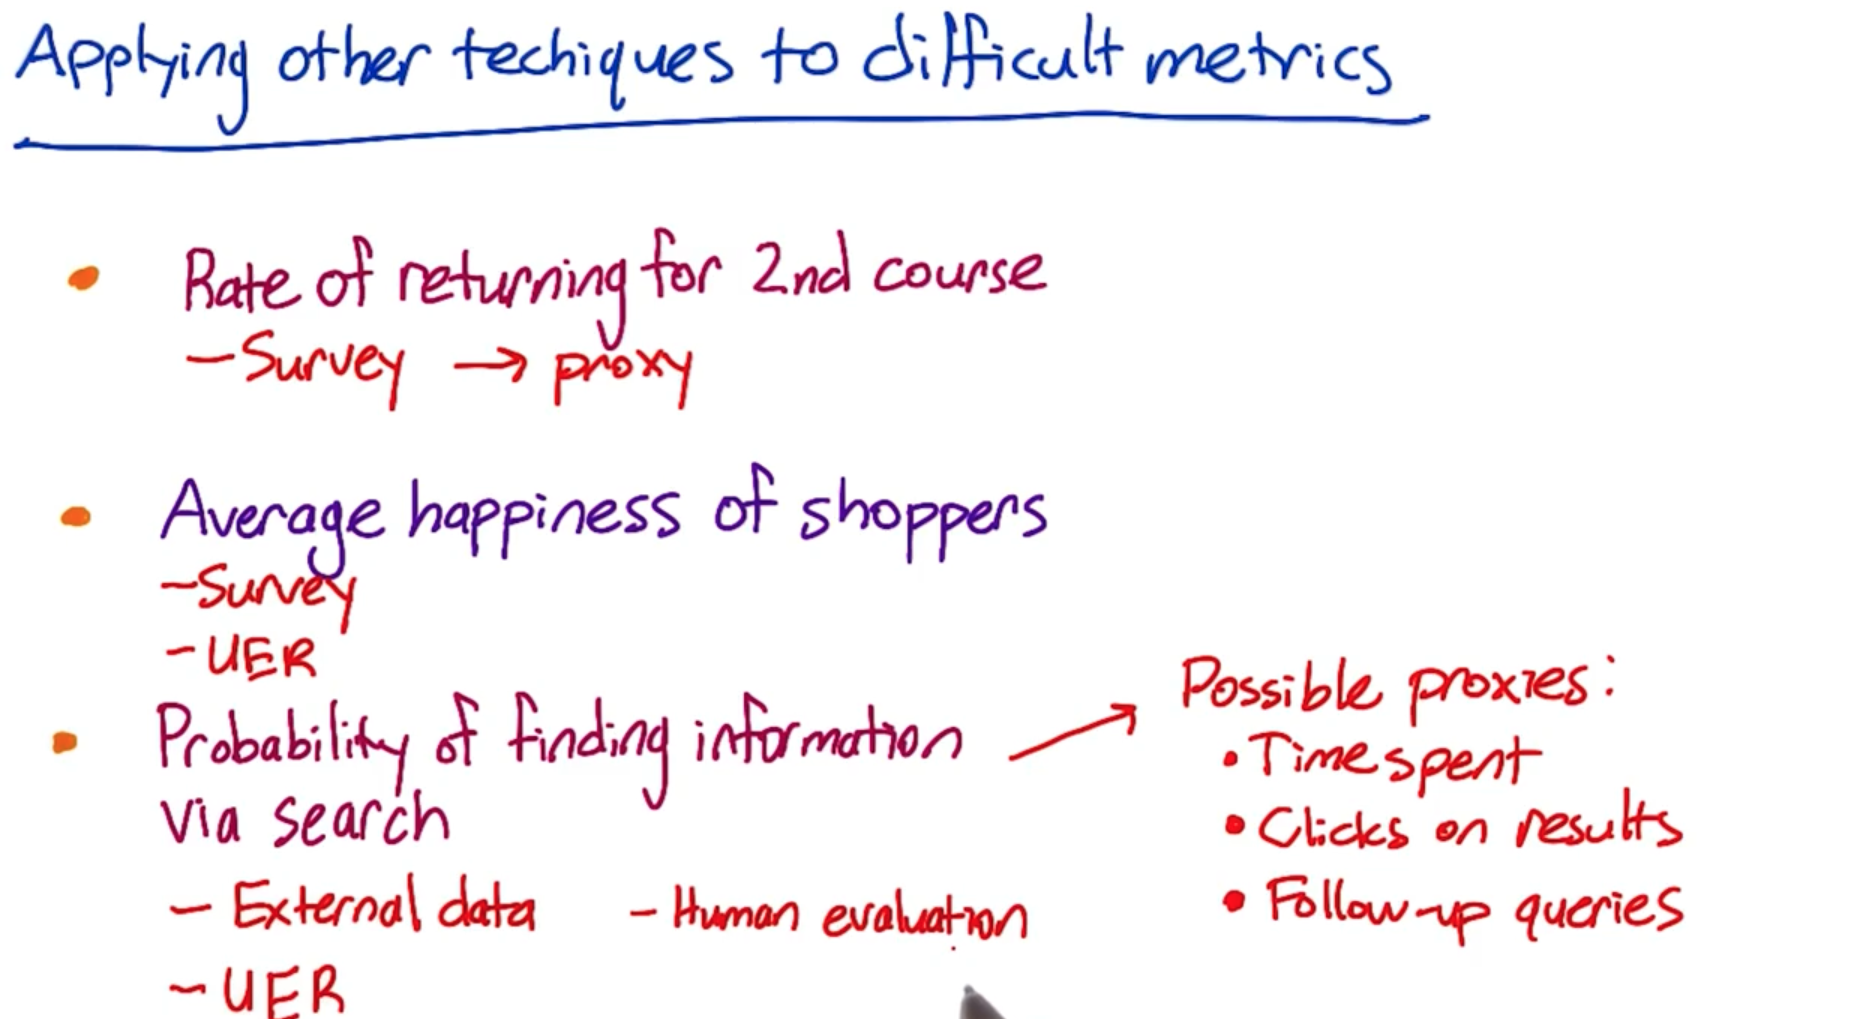 Applying other techiques to difficult metrics
• Rate of returning for 2nd course
– Survey → proxy
• Average happiness of shoppers
– Survey
– UER
• Probability of finding information →
via search
– External data – Human evaluation
– UER
Possible proxies:
• Time spent
• Clicks on results
• Follow-up queries